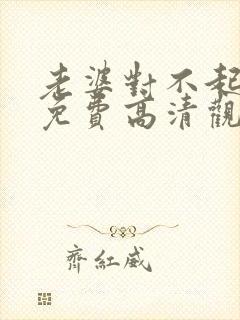 老婆對不起
免費高清觀
齊紅威